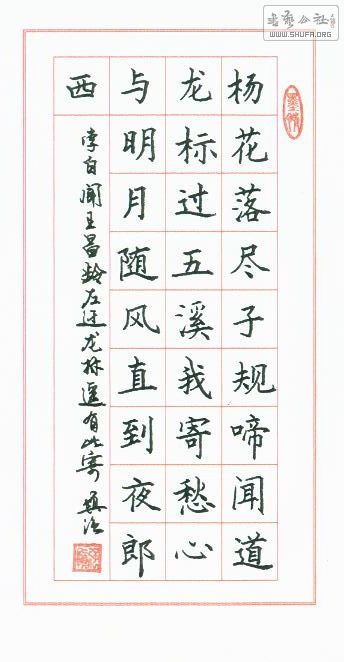 杨花落尽子规啼闻道
龙标过五溪我寄愁心
与明月随风直到夜郎
西
李白闻王昌龄左迁龙标遥有此寄
书艺公社
WWW.SHUFA.ORG